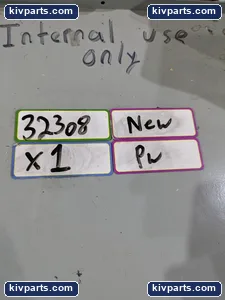 kivparts.com kivparts.com
Internal use
only
32308 New
x1 Pw
kivparts.com kivparts.com